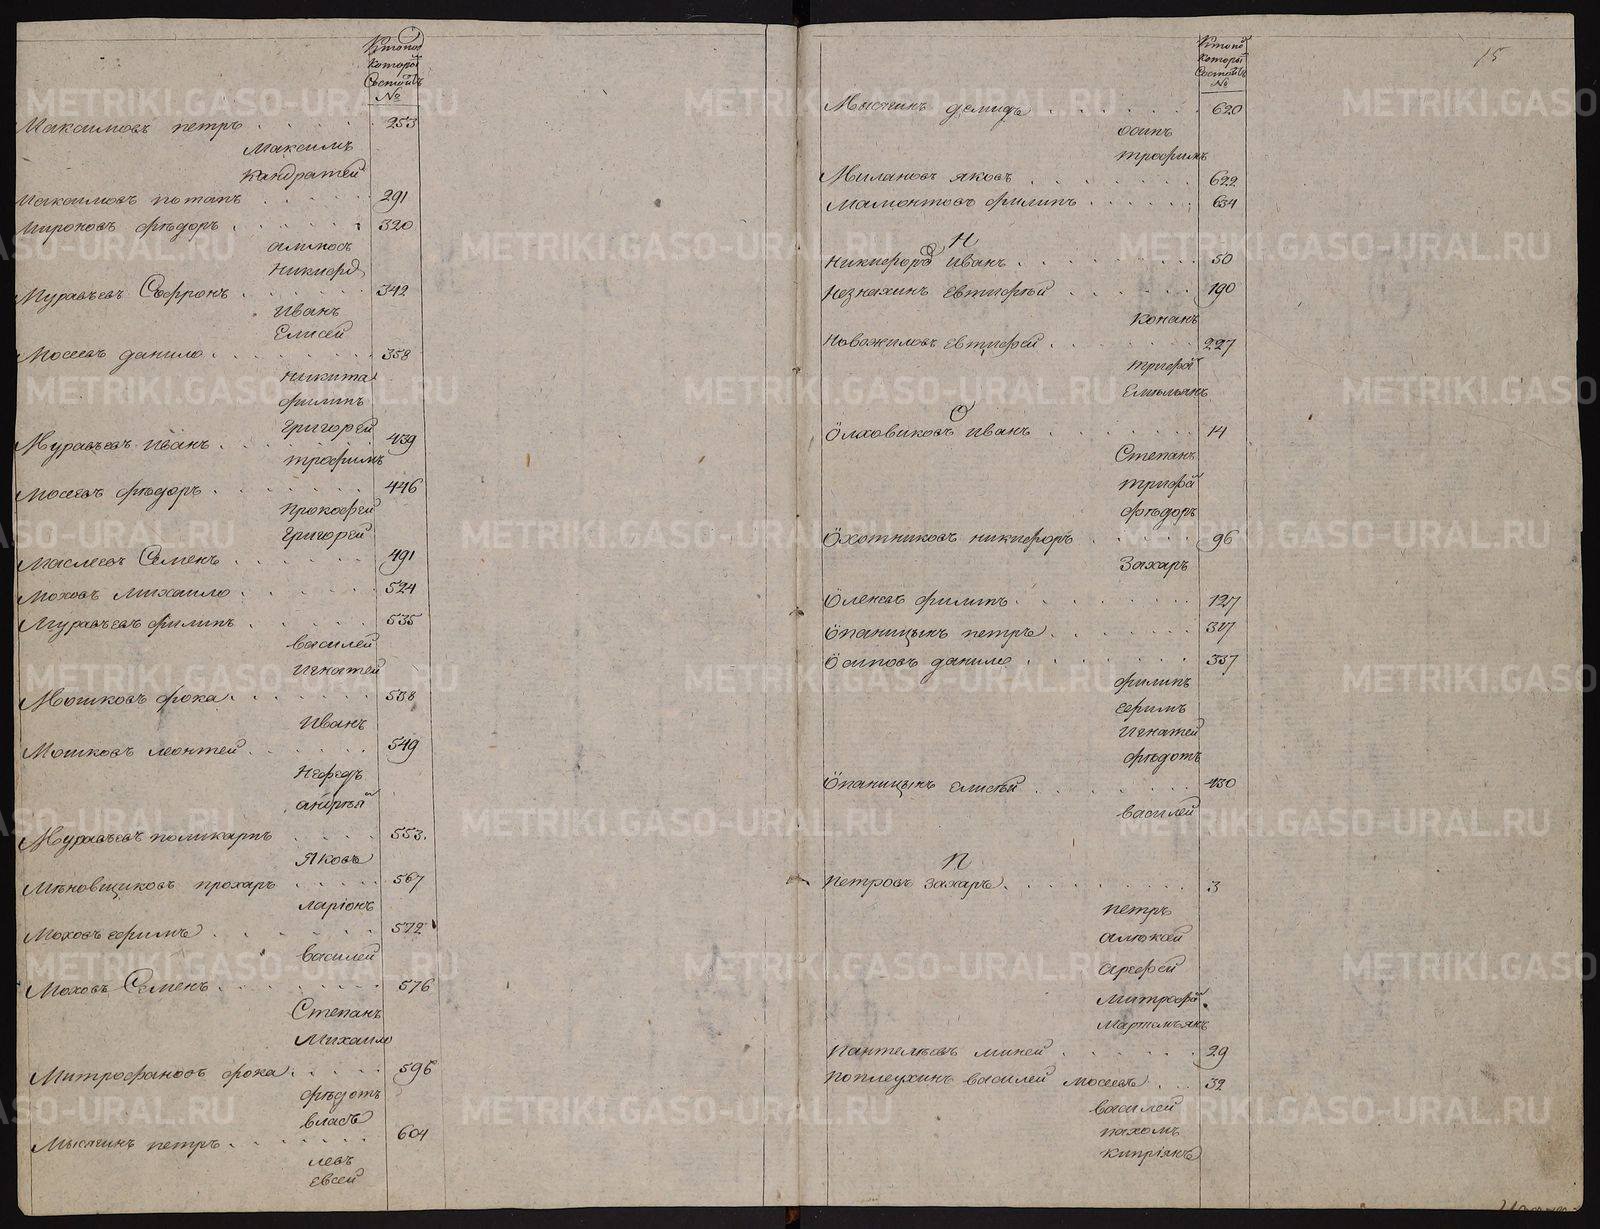 Кто под
которой
Состоитъ
№
Максимовъ петръ . . . . . 253
Максимъ
Кандратей
Максимовъ потапъ . . . . 291
Мироновъ фѣдоръ . . . . . 320
амносъ
Никифо
Муравьевъ Софронъ . . . . . 342
Иванъ
Елисей
Мосеевъ данило . . . . . . . 358
Никита
филипъ
Григорей
Муравьевъ Иванъ . . . . . 439
трофимъ
Мосеевъ фѣдоръ . . . . . . 446
Прокофей
Григорей
Маслеевъ Семенъ . . . . . . 491
Моховъ михаило . . . . . . 524
Муравьевъ филипъ . . . . . 535
василей
Игнатей
Мошковъ фока . . . . . . . 538
Иванъ
Мошковъ леонтей . . . . . . 549
Нефедъ
андрѣй
Муравьевъ поликарпъ . . . . 553.
Яковъ
Мѣновщиковъ прохаръ . . . . . 567
ларіонъ
Моховъ ефимъ . . . . . . . 572
василей
Моховъ Семенъ . . . . . . . 576
Степанъ
Михаило
Митрофановъ фока . . . . . 596
фѣдотъ
власъ
Мысгинъ петръ . . . . . . . 604
левъ
Евсей
Кто под
которой
Состоитъ
№
15
Мысгинъ демидъ . . . . . . 620
осипъ
трофимъ
Милановъ яковъ . . . . . . . 622
Мамонтовъ филипъ . . . . . 634
Н
Никифоровъ Иванъ . . . . . . . 50
Незнахинъ евтифѣй . . . . . . 190
Конанъ
Новожиловъ евтифей . . . . . . 227
трифо
Емельянъ
О
Олховиковъ Иванъ . . . . . . . 14
Степанъ
трифо
фѣдоръ
Охотниковъ никифоръ . . . . . 96
Захаръ
Оленевъ филипъ . . . . . . . 127
Опаницынъ петръ . . . . . . 327
Осиповъ данило . . . . . . . 337
филипъ
ефимъ
Игнатей
фѣдотъ
Опаницынъ елисѣй . . . . . . 430
василей
П
Петровъ Захаръ . . . . . . . . 3
петръ
алѣксей
арефей
митрофа
Мартемьянъ
Пантелѣевъ миней . . . . . . 29
Поплеухинъ василей мосеевъ . . 32
василей
пахомъ
кипріянъ